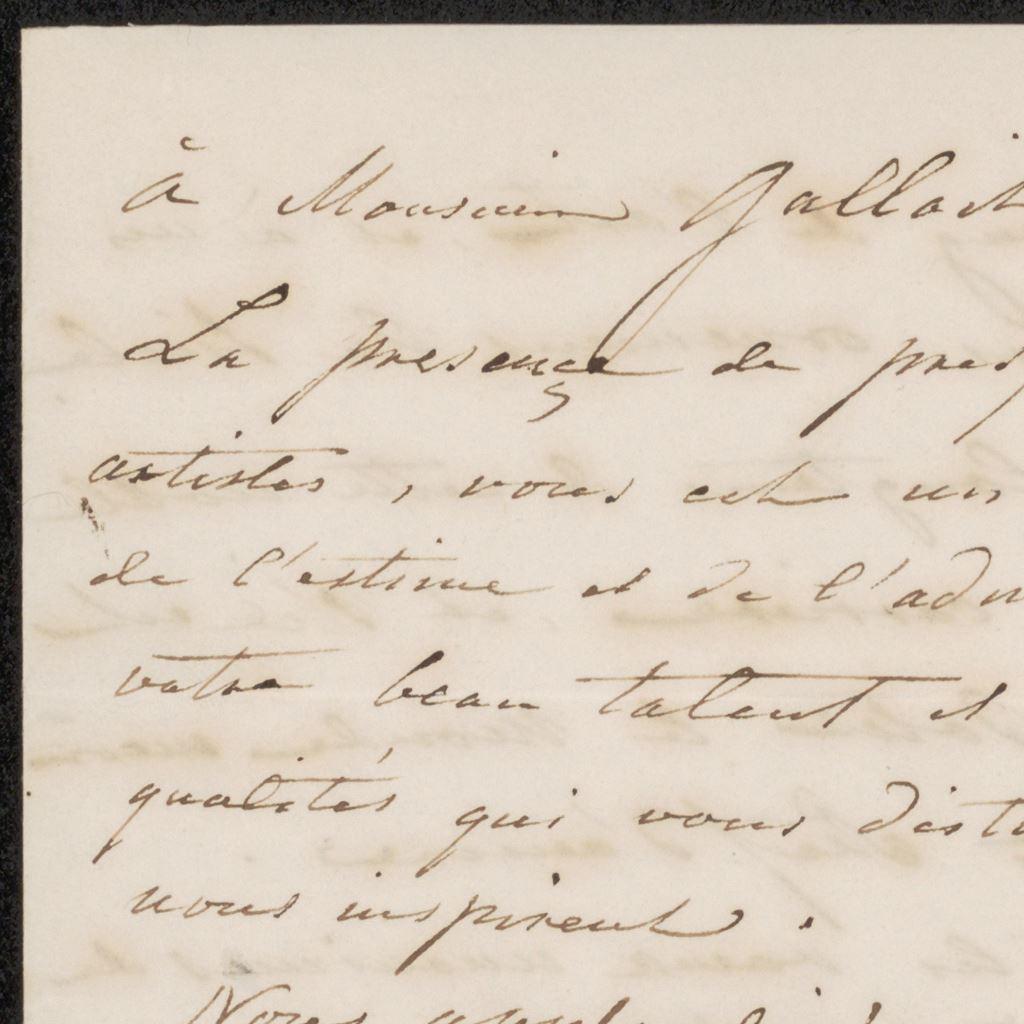 à Monsieur Gallait
La presence de pres
artistes, vous est un
de l'estime et de l'adm
votre beau talent et
qualités qui vous disti
nous inspirent.
Nous